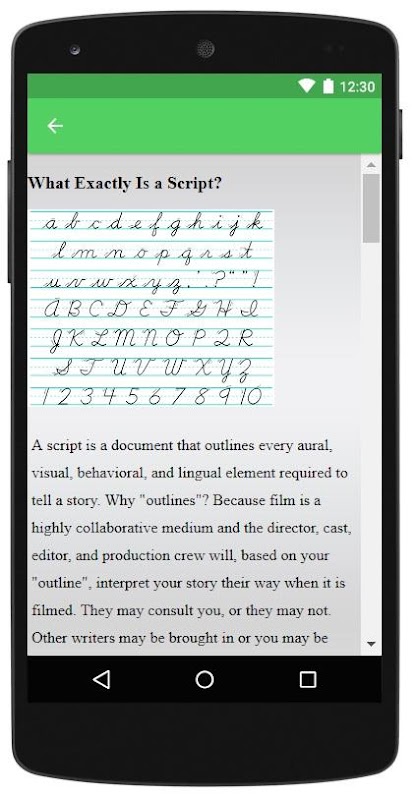 12:30
What Exactly Is a Script?
a b c d e f g h i j k
l m n o p q r s t
u v w x y z . ' . ? " " !
A B C D E F G H I
J K L M N O P Q R
S T U V W X Y Z
1 2 3 4 5 6 7 8 9 10
A script is a document that outlines every aural,
visual, behavioral, and lingual element required to
tell a story. Why "outlines"? Because film is a
highly collaborative medium and the director, cast,
editor, and production crew will, based on your
"outline", interpret your story their way when it is
filmed. They may consult you, or they may not.
Other writers may be brought in or you may be